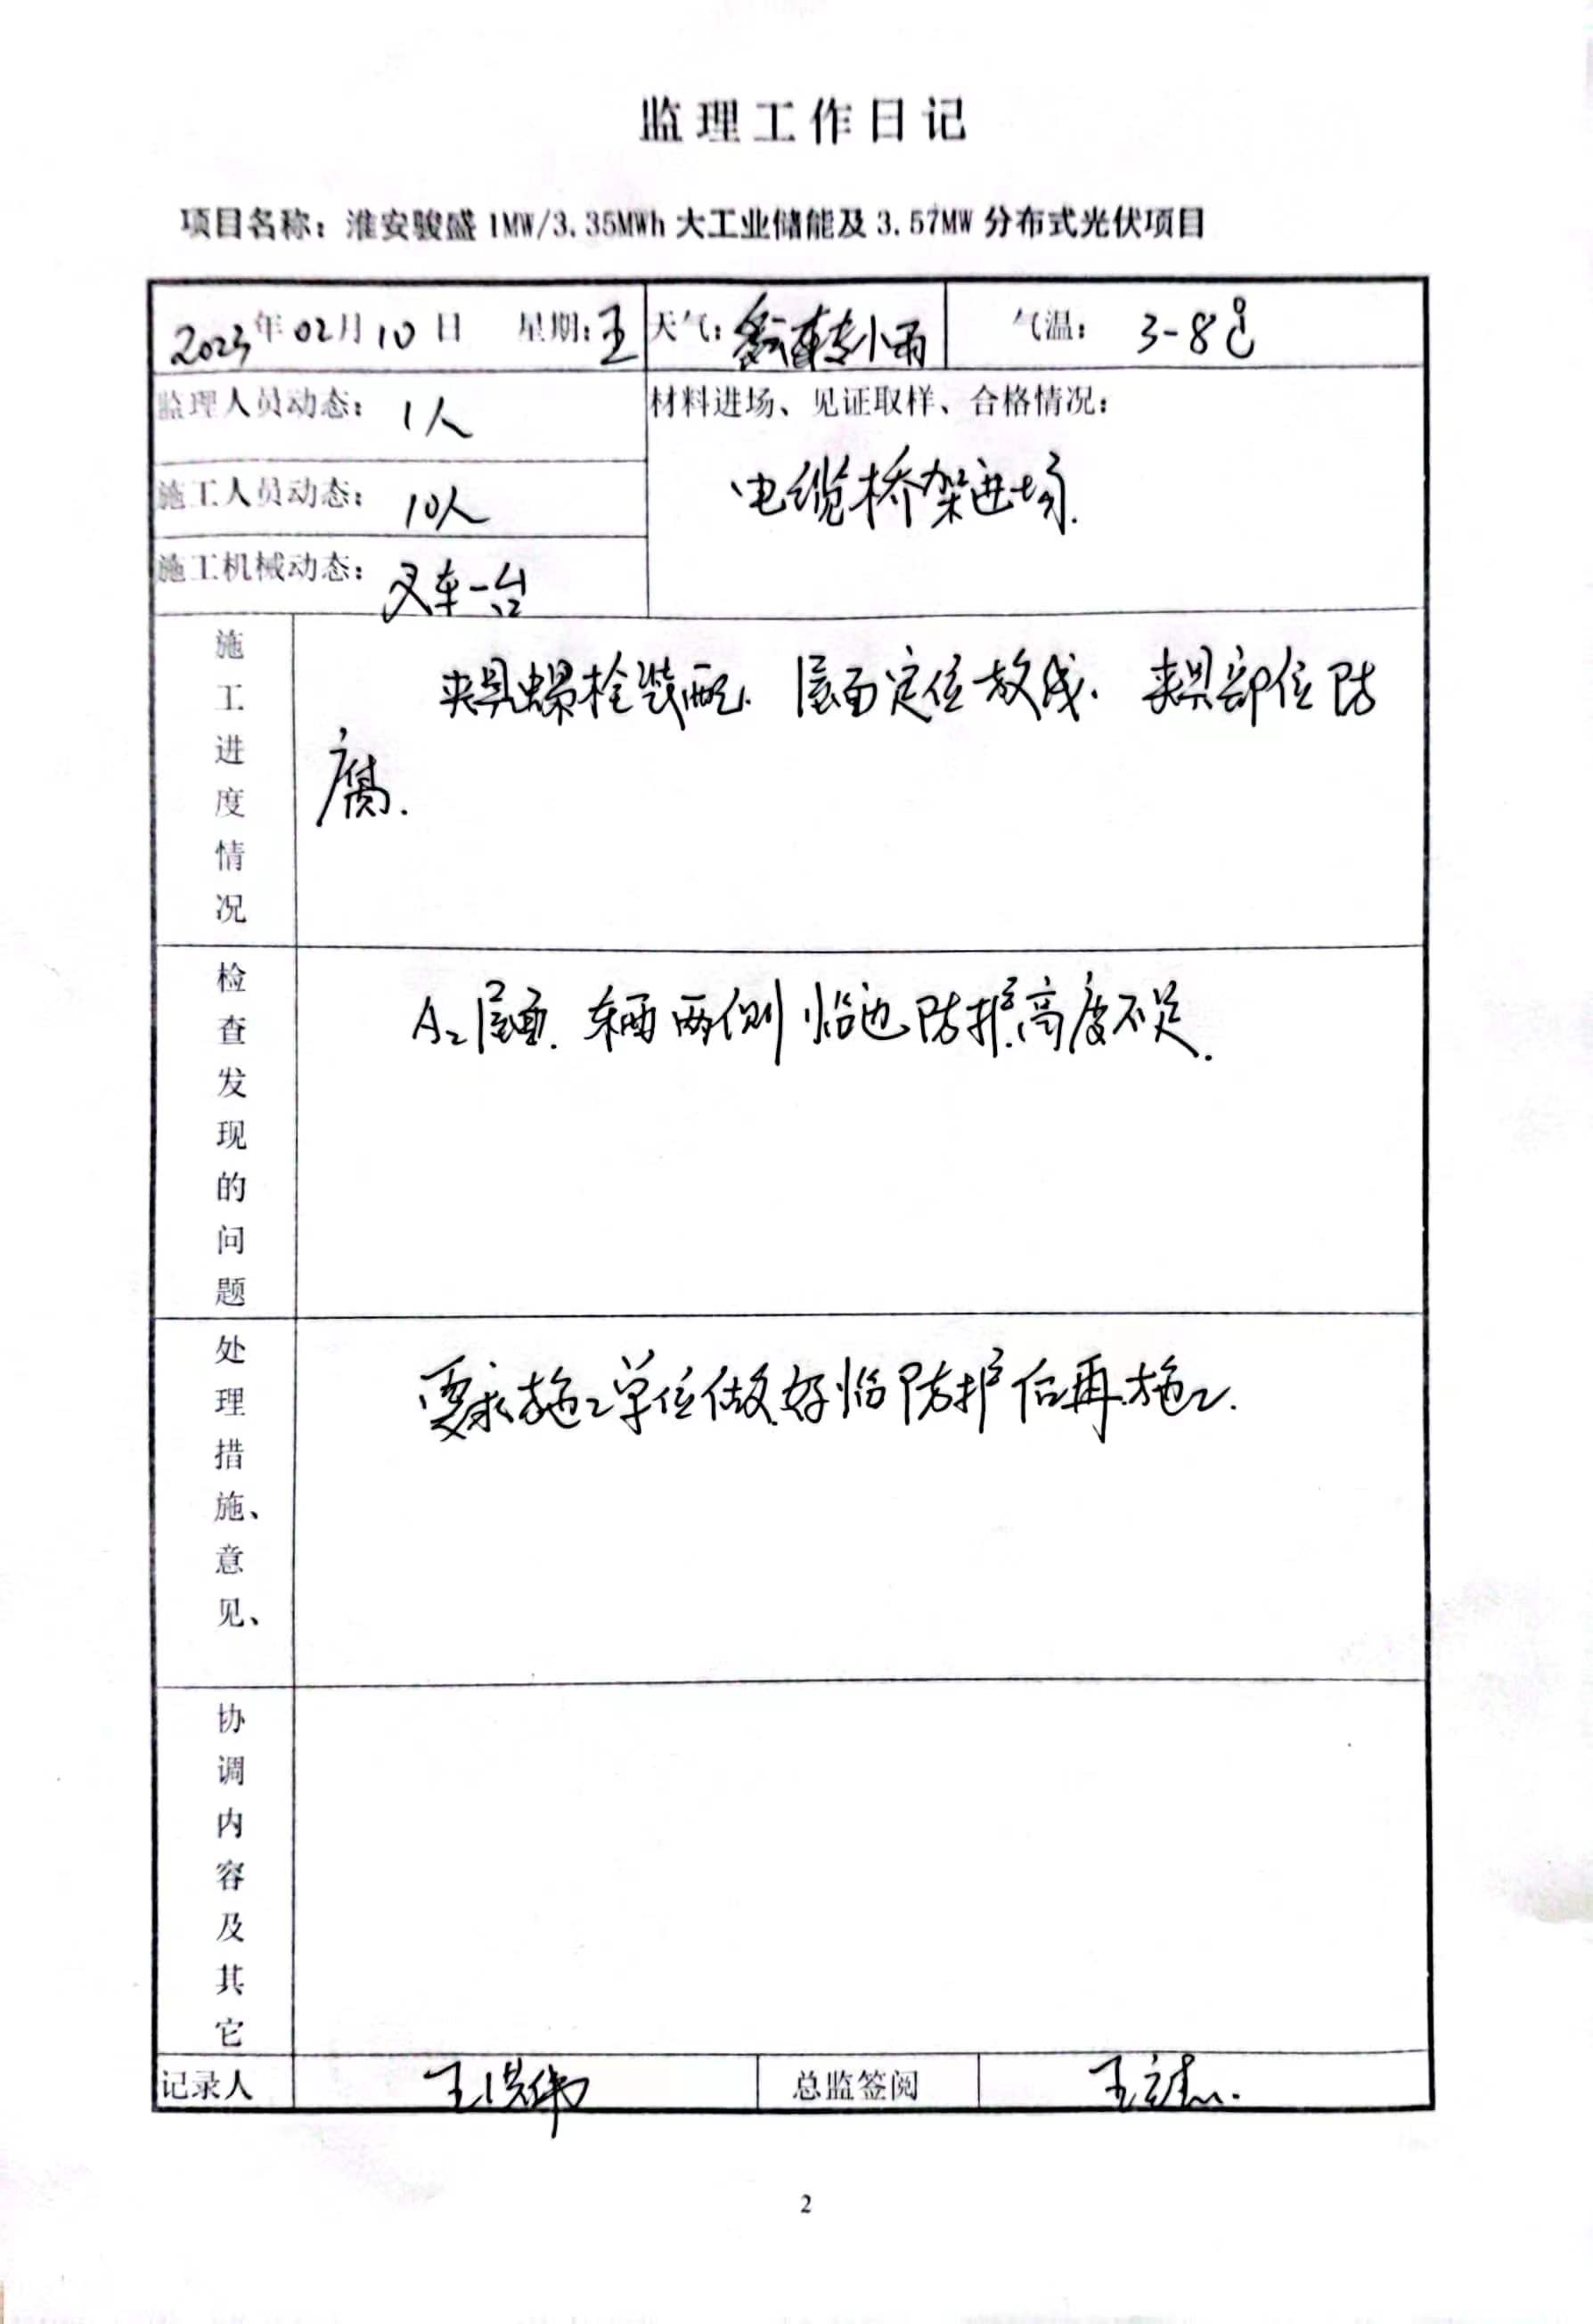 监理工作日记
项目名称：淮安骏盛1MW/3.35MWh大工业储能及3.57MW分布式光伏项目
2023年02月10日 星期:五 天气:转小雨 气温: 3-8℃
监理人员动态: 1人
材料进场、见证取样、合格情况:
电缆桥架进场.
施工人员动态: 10人
施工机械动态: 叉车一台
施工进度情况
夹具螺栓装配. 屋面定位放线. 夹具部位防
腐.
检查发现的问题
A2屋面. 东西两侧临边防护高度不足.
处理措施、意见、
要求施工单位做好临防护后再施工.
协调内容及其它
记录人 王洪伟 总监签阅
2